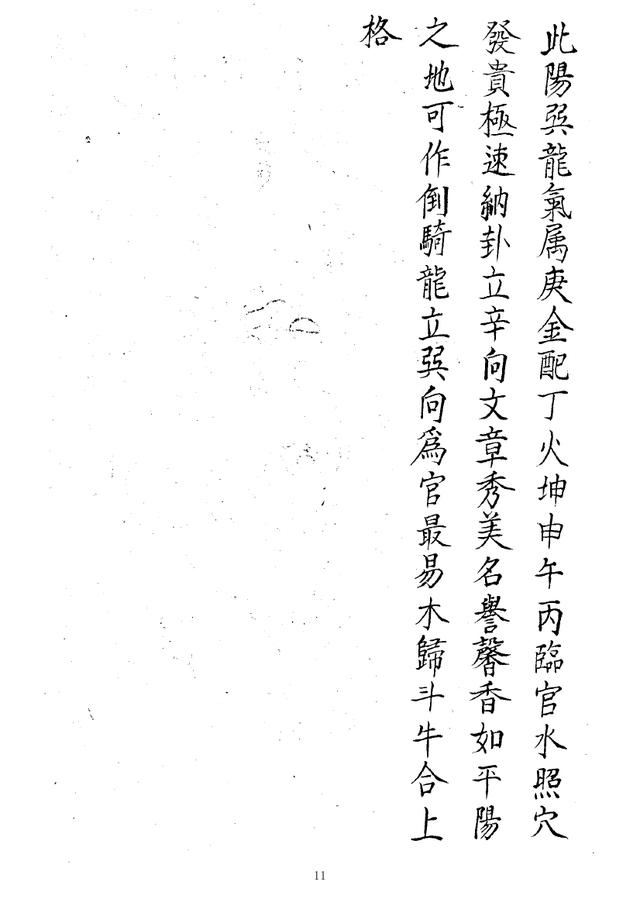 此陽巽龍氣属庚金配丁火坤申午丙臨官水照穴
發貴極速納卦立辛向文章秀美名譽馨香如平陽
之地可作倒騎龍立巽向爲官最易木歸斗牛合上
格
11